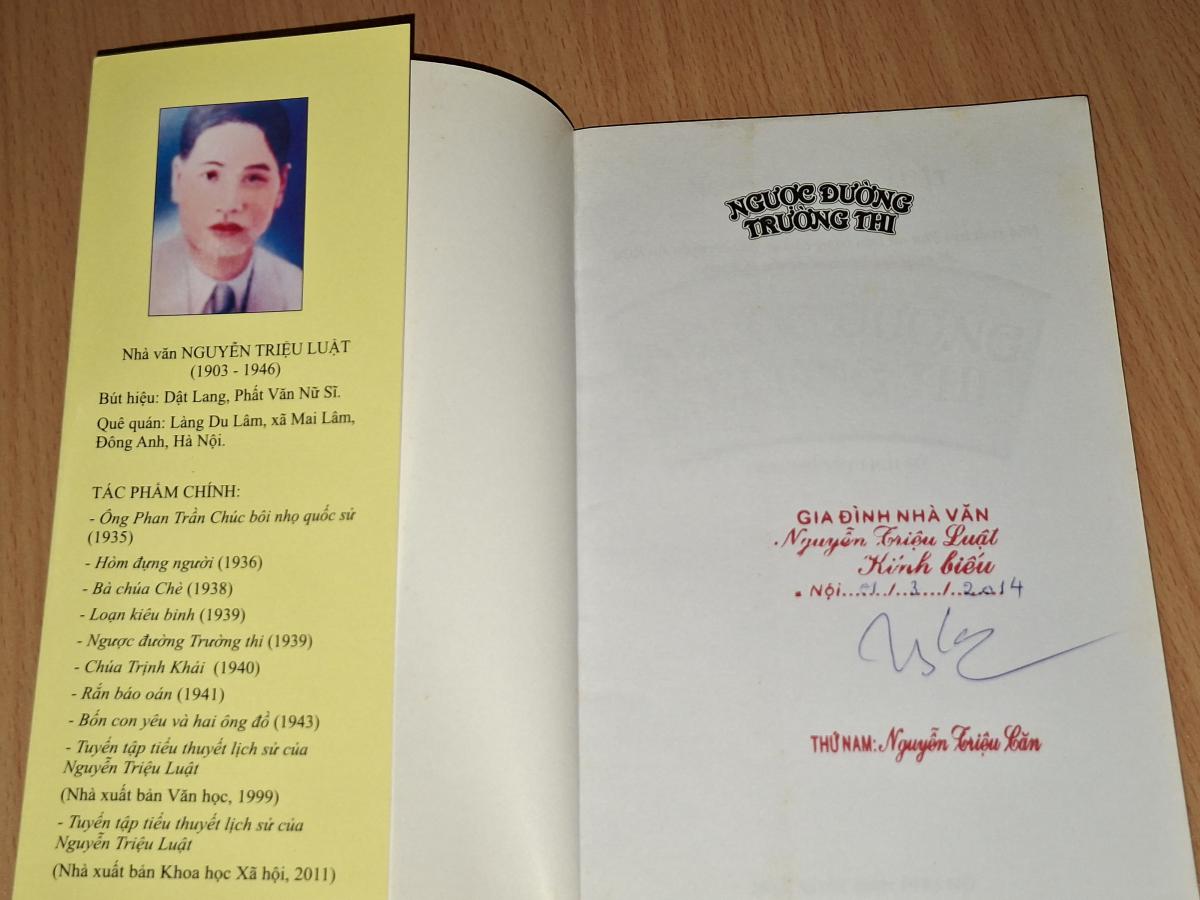 Nhà văn NGUYỄN TRIỆU LUẬT
(1903 - 1946)
Bút hiệu: Dật Lang, Phất Văn Nữ Sĩ.
Quê quán: Làng Du Lâm, xã Mai Lâm,
Đông Anh, Hà Nội.
TÁC PHẨM CHÍNH:
- Ông Phan Trần Chúc bôi nhọ quốc sử
(1935)
- Hòm đựng người (1936)
- Bà chúa Chè (1938)
- Loạn kiêu binh (1939)
- Ngược đường Trường thi (1939)
- Chúa Trịnh Khải (1940)
- Rắn báo oán (1941)
- Bốn con yêu và hai ông đồ (1943)
- Tuyển tập tiểu thuyết lịch sử của
Nguyễn Triệu Luật
(Nhà xuất bản Văn học, 1999)
- Tuyển tập tiểu thuyết lịch sử của
Nguyễn Triệu Luật
(Nhà xuất bản Khoa học Xã hội, 2011)
NGƯỢC ĐƯỜNG
TRƯỜNG THI
GIA ĐÌNH NHÀ VĂN
Nguyễn Triệu Luật
Kính biếu
Nội...../..3../..2014
THỨ NAM: Nguyễn Triệu Căn